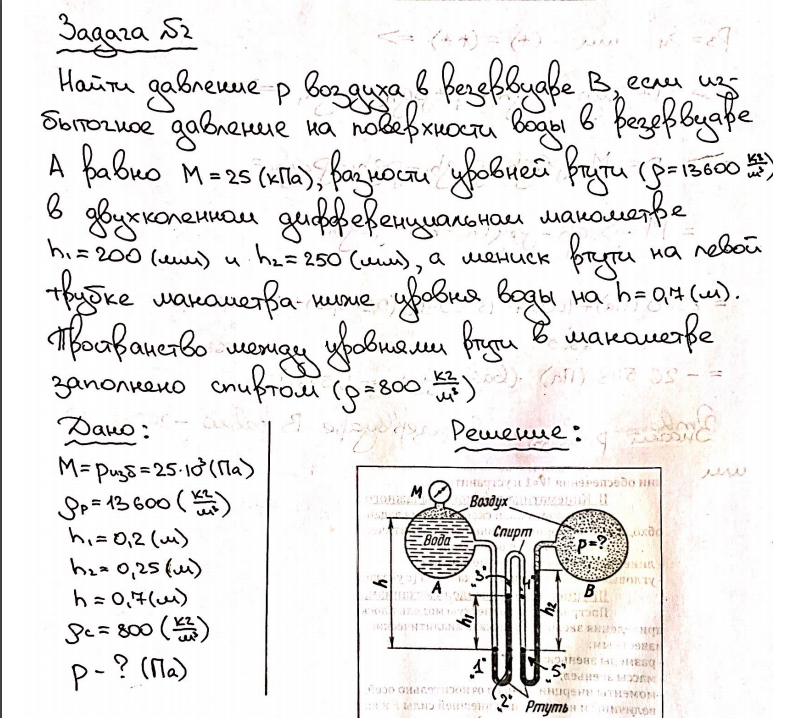 Задача №2
Найти давление р воздуха в резервуаре В, если из-
быточное давление на поверхности воды в резервуаре
А равно M = 25 (кПа), разности уровней ртути (ρ=13600 кг/м³)
в двухколенном дифференциальном манометре
h₁ = 200 (мм) и h₂ = 250 (мм), а мениск ртути на левой
трубке манометра ниже уровня воды на h = 0,7 (м).
Пространство между уровнями ртути в манометре
заполнено спиртом (ρ=800 кг/м³)
Дано:
M = pизб = 25·10³ (Па)
ρр = 13600 (кг/м³)
h₁ = 0,2 (м)
h₂ = 0,25 (м)
h = 0,7 (м)
ρс = 800 (кг/м³)
р - ? (Па)
Решение:
М
Воздух
Вода
Спирт
p=?
А
В
h
"3"
"4"
h₁
h₂
"1"
"2"
"5"
Ртуть